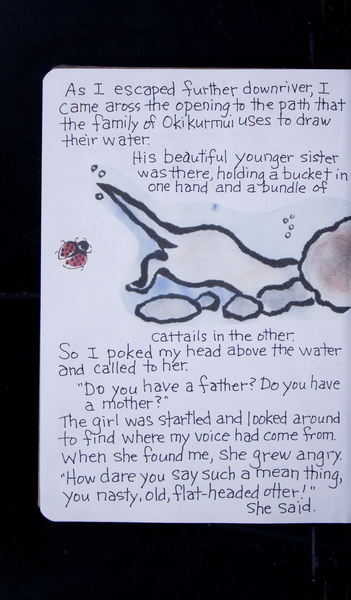 As I escaped further downriver, I
came aross the opening to the path that
the family of Okikurmui uses to draw
their water.
His beautiful younger sister
was there, holding a bucket in
one hand and a bundle of
cattails in the other.
So I poked my head above the water
and called to her.
"Do you have a father? Do you have
a mother?"
The girl was startled and looked around
to find where my voice had come from.
When she found me, she grew angry.
"How dare you say such a mean thing,
you nasty, old, flat-headed otter!"
She said.